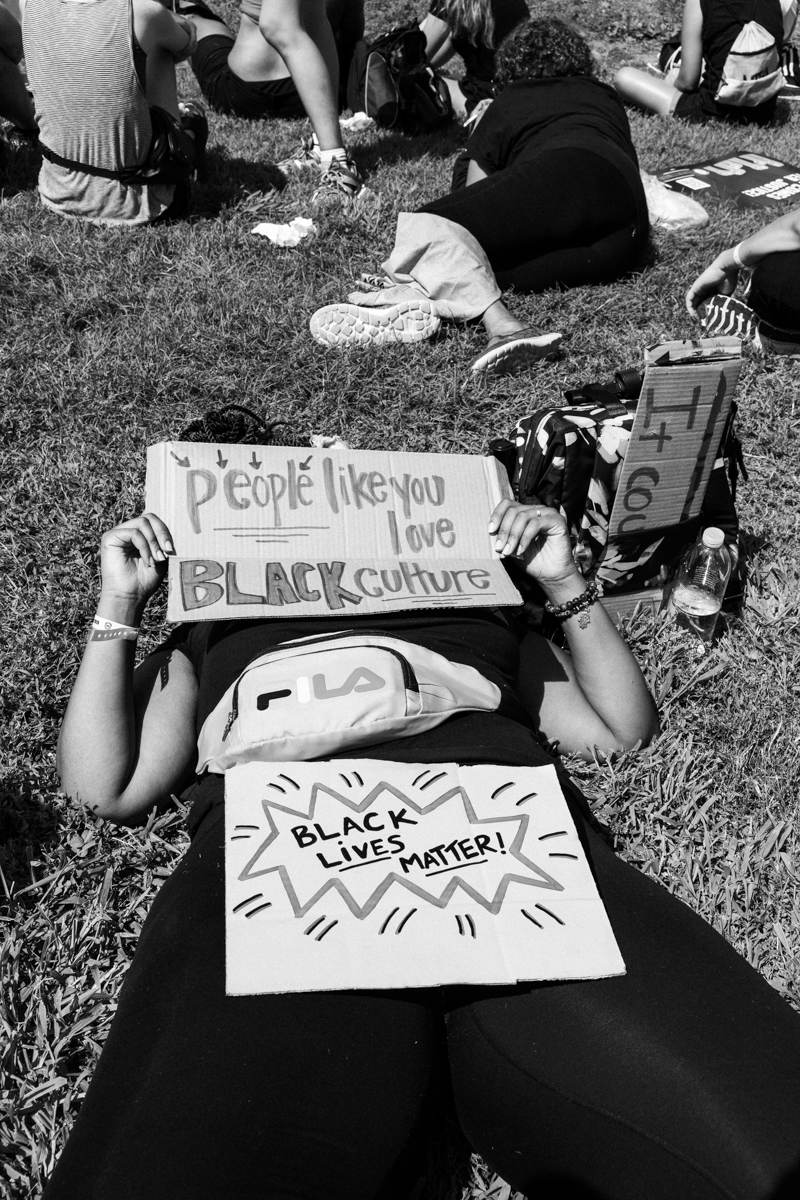 People like you
love
BLACK culture
It
FILA
BLACK
LiVES
MATTER!